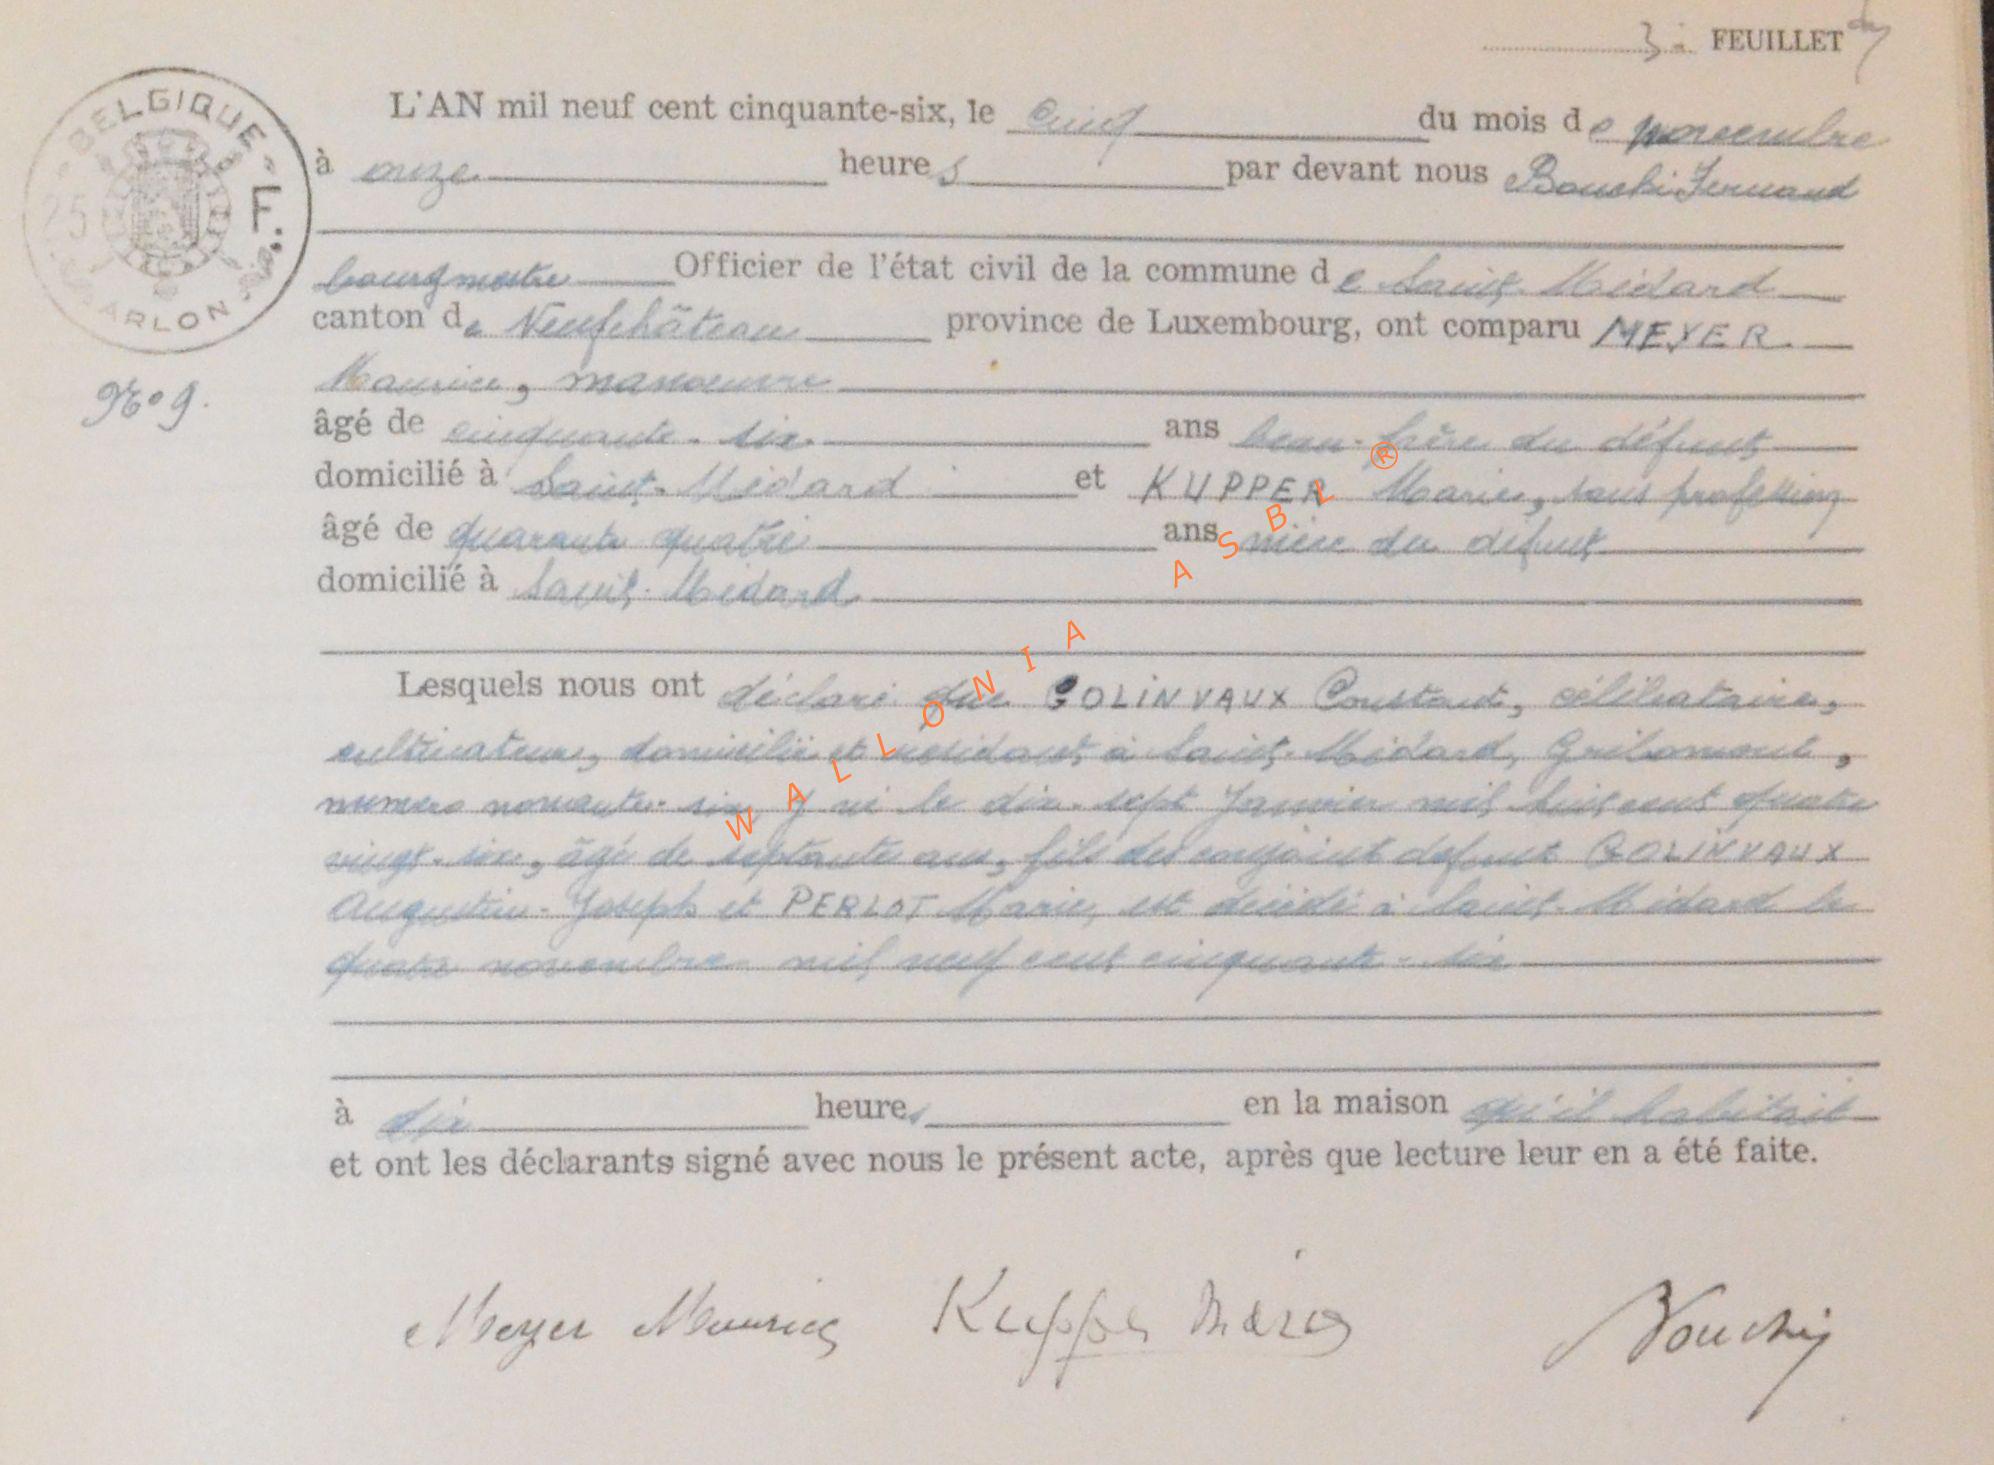 3e FEUILLET
BELGIQUE
25 F.
ARLON
L'AN mil neuf cent cinquante-six, le cinq du mois de novembre
à onze heures par devant nous Fernand
bourgmestre Officier de l'état civil de la commune de Saint-Médard
canton de Neufchâteau province de Luxembourg, ont comparu MEYER
Maurice, manœuvre
No 9.
âgé de cinquante-six ans beau-frère du défunt
domicilié à Saint-Médard et KUPPER Marie, sans profession
âgé de quarante quatre ans nièce du défunt
domicilié à Saint-Médard
Lesquels nous ont déclaré que COLINVAUX Constant, célibataire,
cultivateur, domicilié et résidant à Saint-Médard, Gribomont,
numéro nonante-six, y né le dix-sept Janvier mil huit cent quatre
vingt-six, âgé de septante ans, fils des conjoint défunt COLINVAUX
Augustin-Joseph et PERLOT Marie, est décédé à Saint-Médard le
quatre novembre mil neuf cent cinquante-six
à dix heures en la maison qu'il habitait
et ont les déclarants signé avec nous le présent acte, après que lecture leur en a été faite.
Meyer Maurice Kupper Marie
WALLONIA ASBL ®